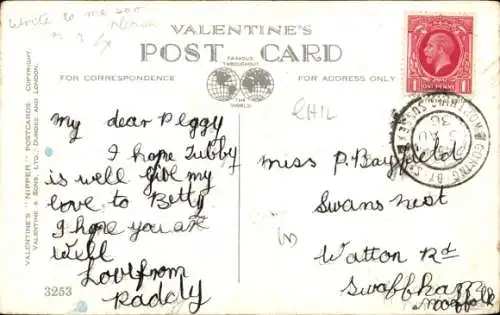 write to me soo
VALENTINE'S
POST CARD
FAMOUS THROUGHOUT
THE WORLD
FOR CORRESPONDENCE
FOR ADDRESS ONLY
VALENTINE'S "NIPPER" POSTCARDS. COPYRIGHT.
VALENTINE & SONS, LTD., DUNDEE AND LONDON.
CHIL
My dear Peggy
I hope Tubby
is well give my
love to Betty
I hope you are
well
Love from
Paddy
3253
miss P. Bayfield
Swans nest
Watton Rd
Swaffham
Norfolk
GORING BY S
SUSSEX
1 ONE PENNY 1